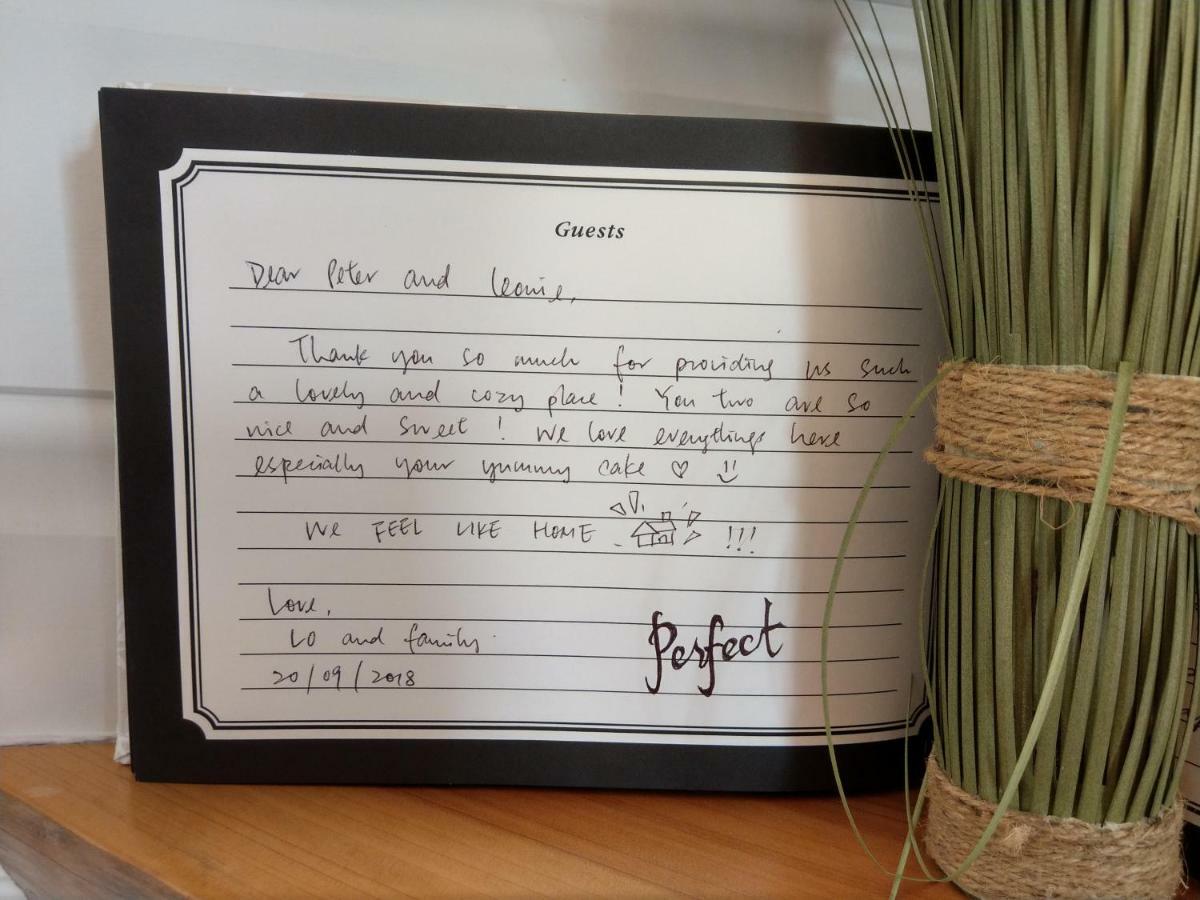 Guests
Dear Peter and Leonie,
Thank you so much for providing us such
a lovely and cozy place! You two are so
nice and sweet! We love everythings here
especially your yummy cake ♡
WE FEEL LIKE HOME !!!
Love,
Lo and family
20/09/2018
Perfect